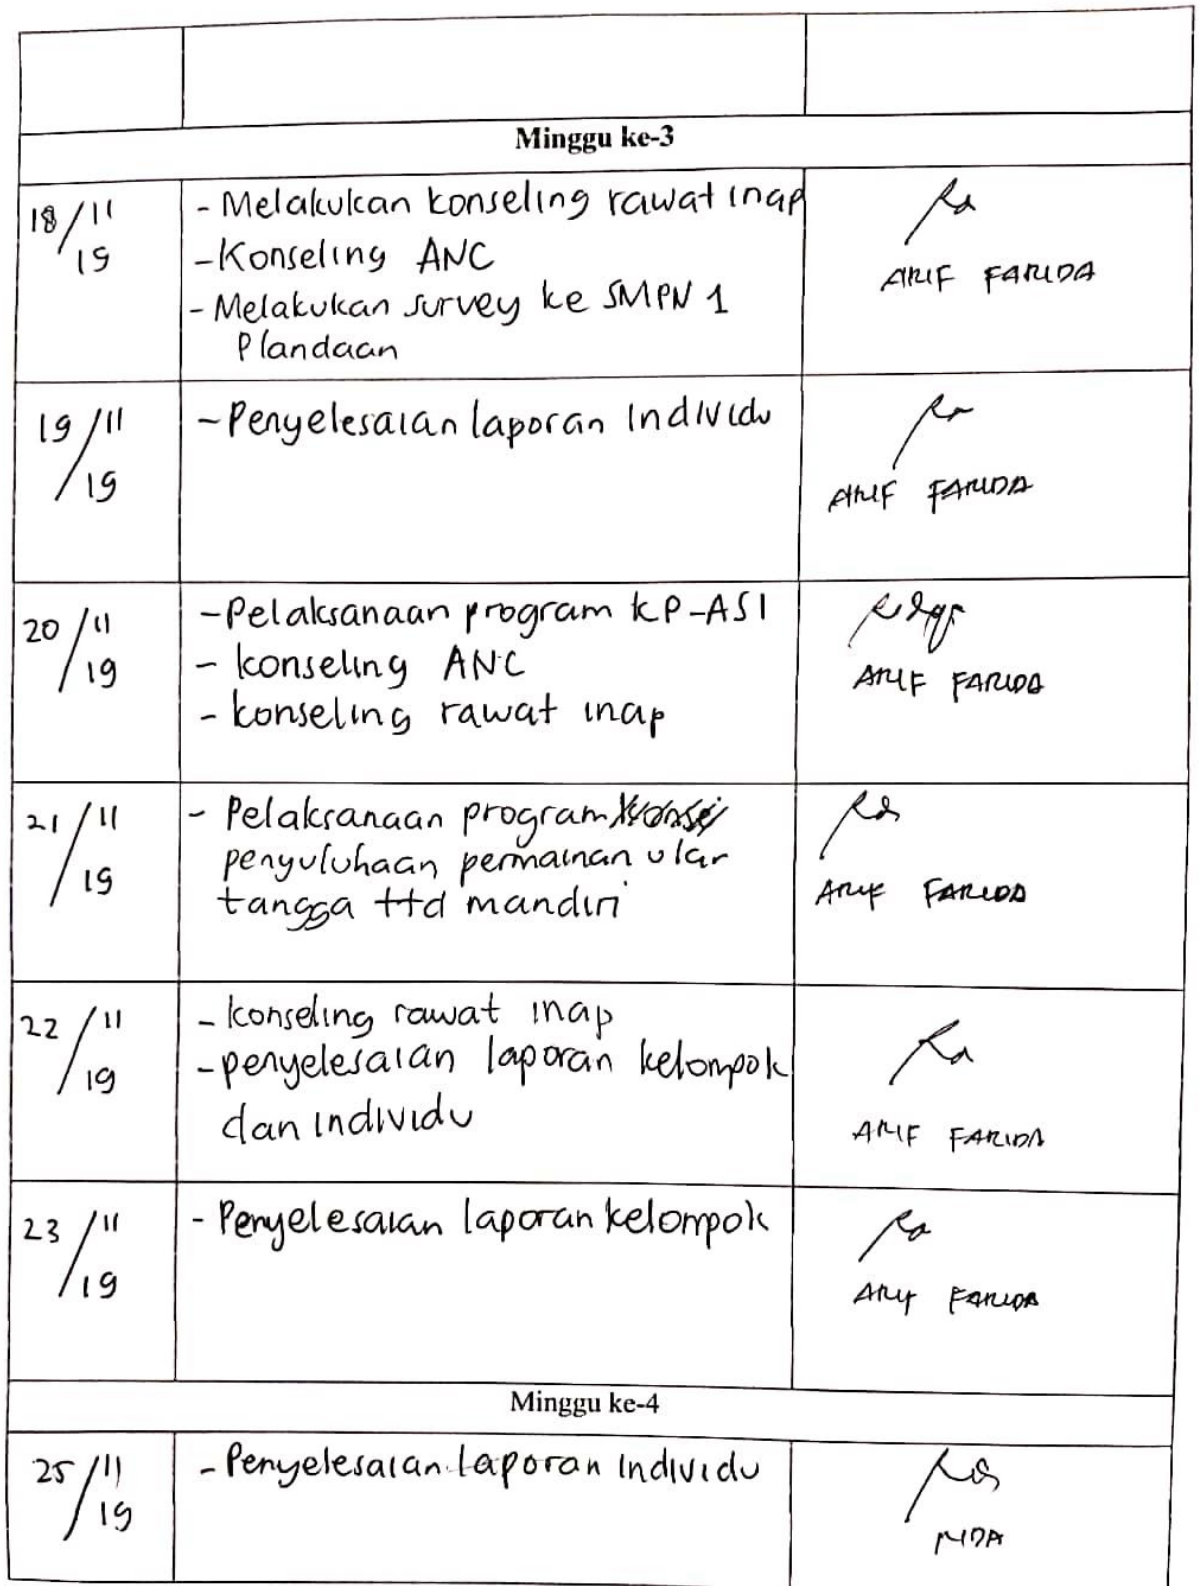 Minggu ke-3
18/11
19
- Melakukan konseling rawat inap
- Konseling ANC
- Melakukan survey ke SMPN 1
Plandaan
ARIF FARIDA
19/11
19
- Penyelesaian laporan Individu
ARIF FARIDA
20/11
19
- Pelaksanaan program KP-ASI
- konseling ANC
- konseling rawat inap
ARIF FARIDA
21/11
19
- Pelaksanaan program
penyuluhaan permainan ular
tangga ttd mandiri
ARIF FARIDA
22/11
19
- konseling rawat inap
- penyelesaian laporan kelompok
dan individu
ARIF FARIDA
23/11
19
- Penyelesaian laporan kelompok
ARIF FARIDA
Minggu ke-4
25/11
19
- Penyelesaian laporan Individu